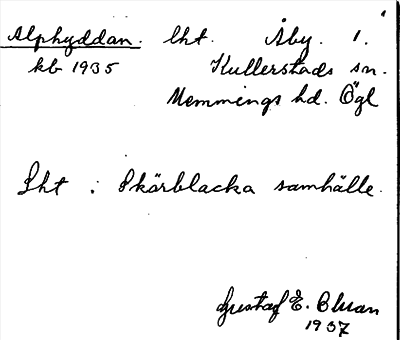 Alphyddan. lht. Åby. 1.
kb 1935 Kullerstads sn.
Memmings hd. Ögl
Lht i Skärblacka samhälle.
Gustaf E. Ohman
1937